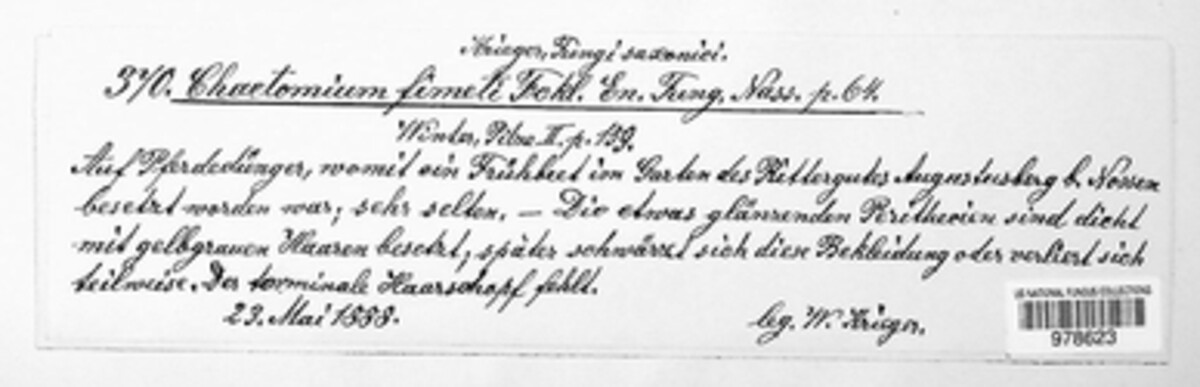 Krieger, Fungi saxonici.
370. Chaetomium fimeti Fckl. En. Fung. Nass. p. 64.
Winter, Pilze II. p. 159.
Auf Pferdedünger, womit ein Frühbeet im Garten des Rittergutes Augustusberg b. Nossen
besetzt worden war; sehr selten. — Die etwas glänzenden Perithecien sind dicht
mit gelbgrauen Haaren besetzt, später schwärzt sich diese Bekleidung oder verliert sich
teilweise. Der terminale Haarschopf fehlt.
23. Mai 1888.
leg. W. Krieger.
US NATIONAL FUNGUS COLLECTIONS
978623